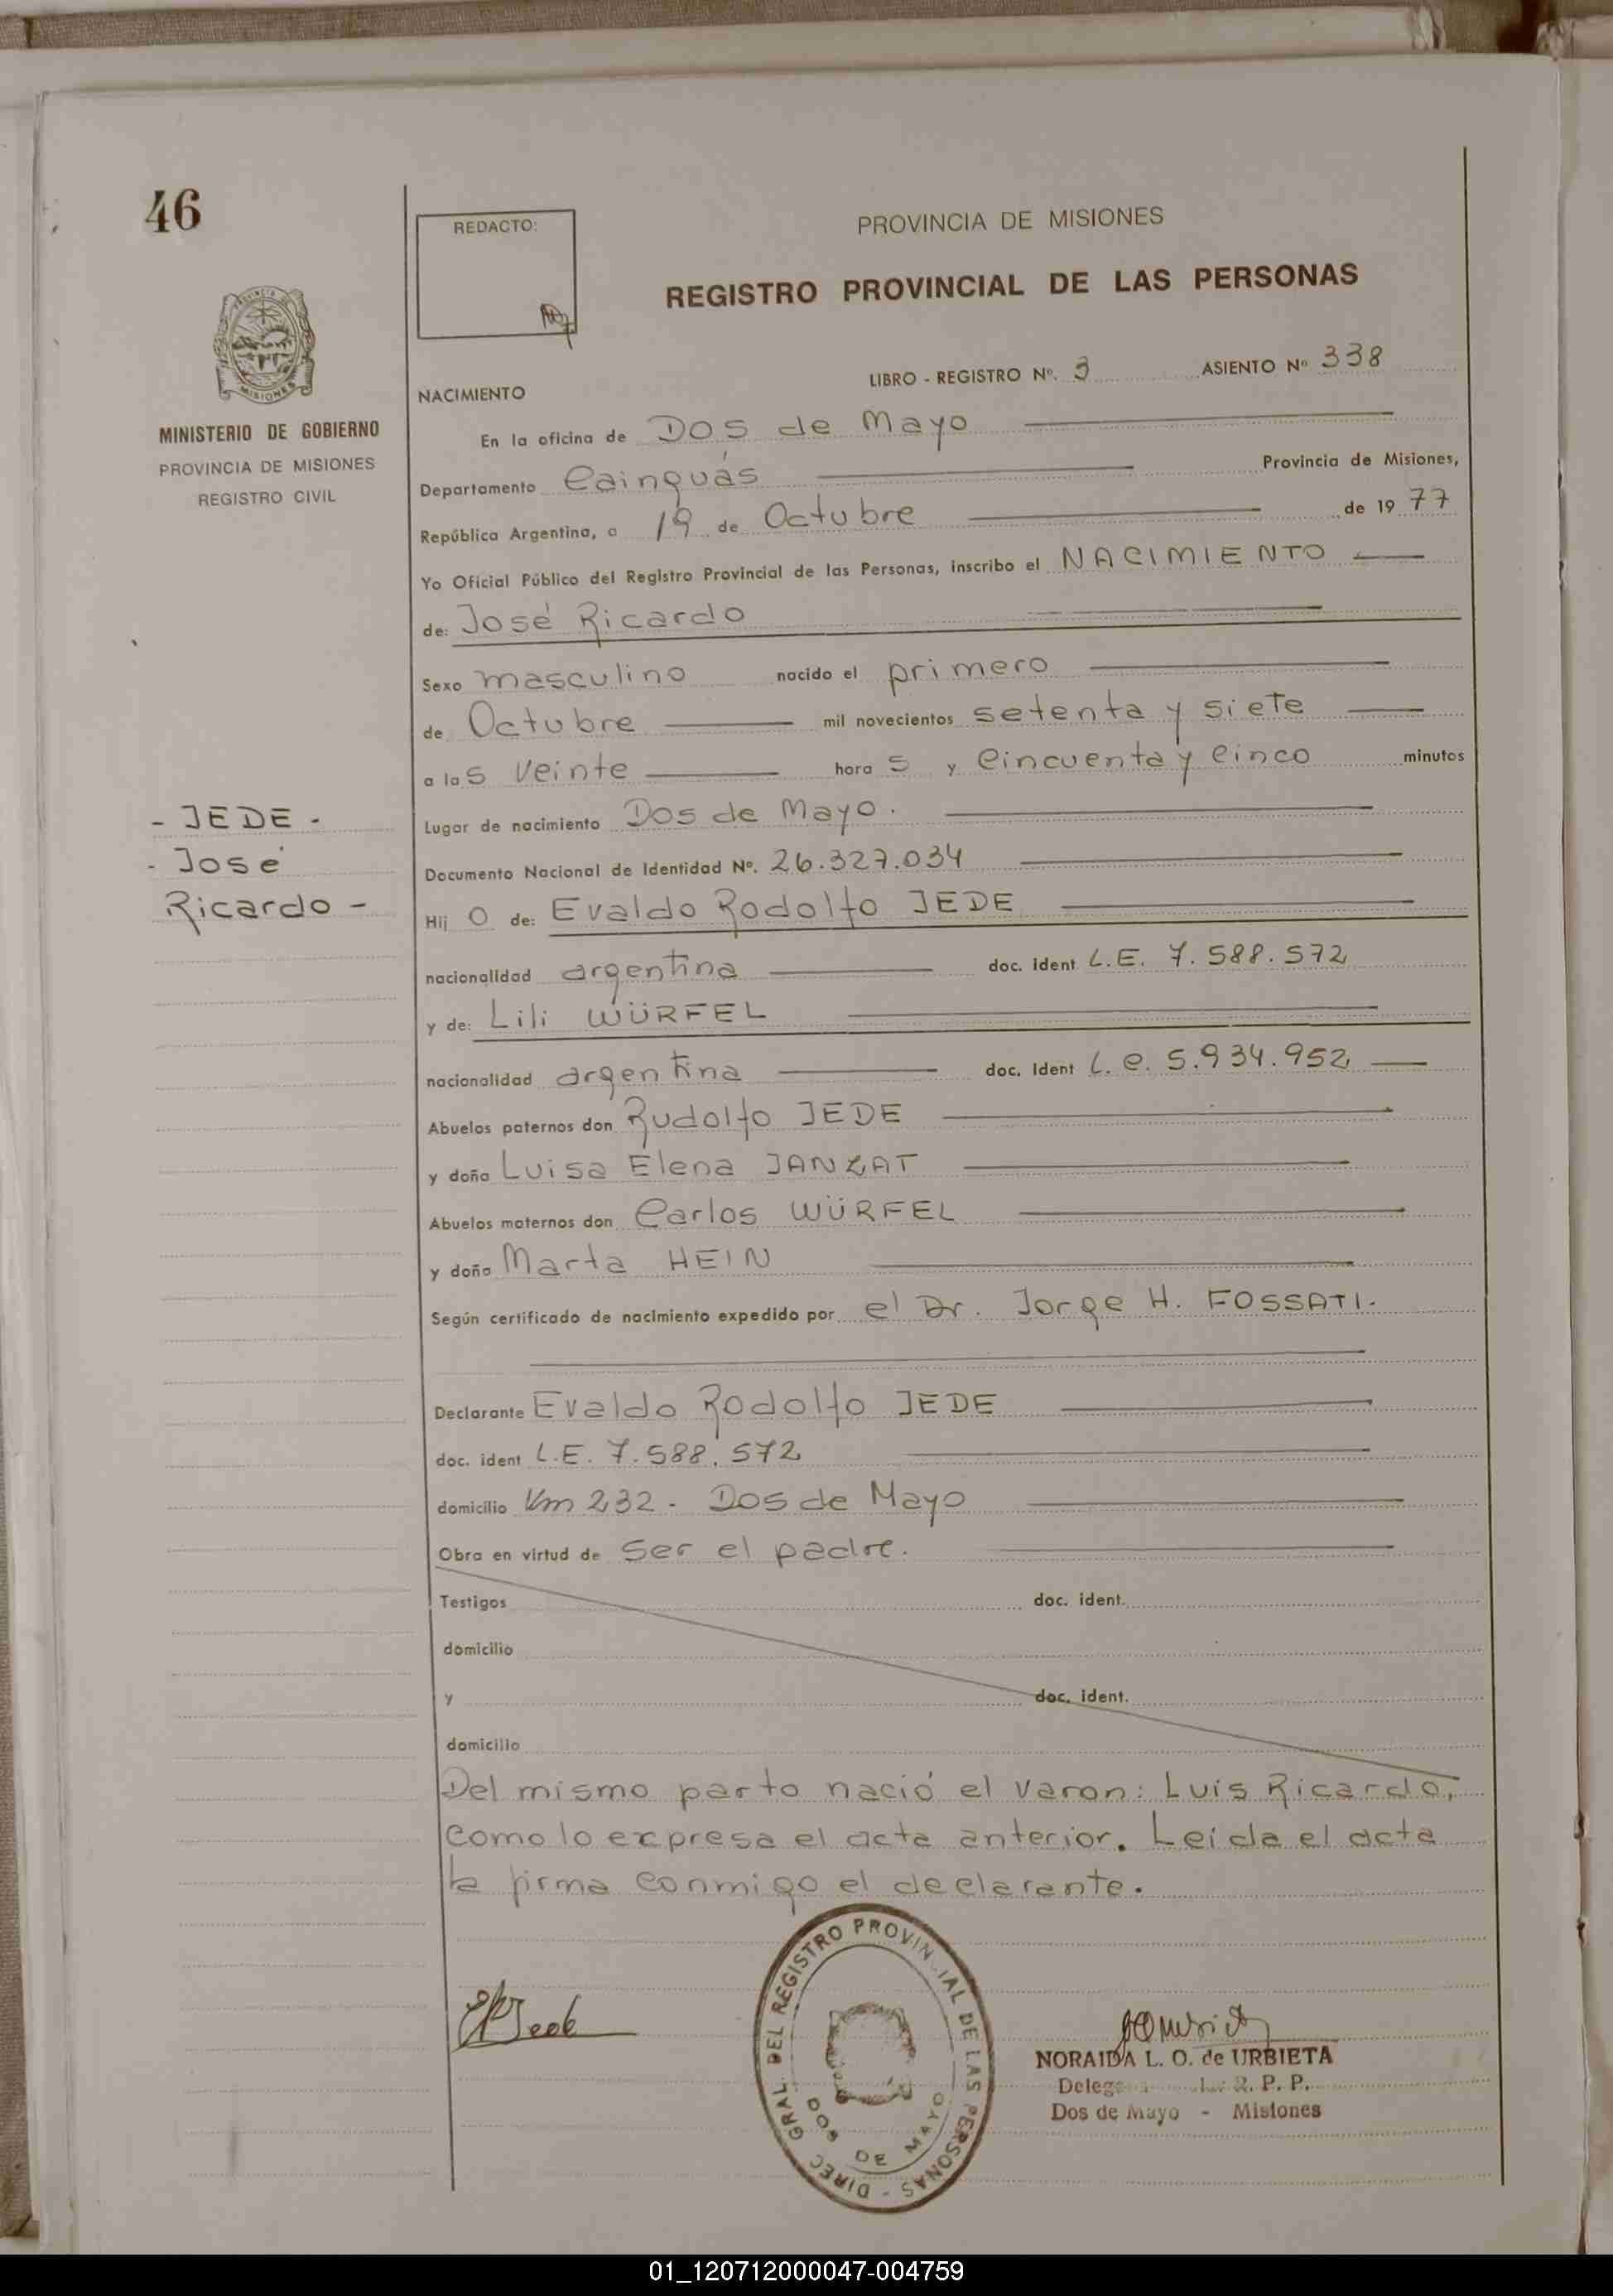 46
REDACTO:
PROVINCIA DE MISIONES
REGISTRO PROVINCIAL DE LAS PERSONAS
PROVINCIA DE MISIONES
MINISTERIO DE GOBIERNO
PROVINCIA DE MISIONES
REGISTRO CIVIL
LIBRO - REGISTRO Nº. 3 ASIENTO Nº 338
NACIMIENTO
En la oficina de Dos de Mayo
Departamento Cainguás Provincia de Misiones,
República Argentina, a 19 de Octubre de 1977
Yo Oficial Público del Registro Provincial de las Personas, inscribo el NACIMIENTO
de: José Ricardo
Sexo masculino nacido el primero
de Octubre mil novecientos setenta y siete
a las veinte horas y cincuenta y cinco minutos
- JEDE -
- José
Ricardo -
Lugar de nacimiento Dos de Mayo.
Documento Nacional de Identidad Nº. 26.327.034
Hijo de: Evaldo Rodolfo JEDE
nacionalidad argentina doc. ident L.E. 7.588.572
y de: Lili WÜRFEL
nacionalidad argentina doc. ident L.C. 5.934.952
Abuelos paternos don Rudolfo JEDE
y doña Luisa Elena JANZAT
Abuelos maternos don Carlos WÜRFEL
y doña Marta HEIN
Según certificado de nacimiento expedido por el Dr. Jorge H. FOSSATI.
Declarante Evaldo Rodolfo JEDE
doc. ident L.E. 7.588.572
domicilio Km 232 - Dos de Mayo
Obra en virtud de ser el padre.
Testigos doc. ident.
domicilio
y doc. ident.
domicilio
Del mismo parto nació el varon: Luis Ricardo,
como lo expresa el acta anterior. Leida el acta
la firma conmigo el declarante.
DIREC. GRAL. DEL REGISTRO PROVINCIAL DE LAS PERSONAS -
DOS DE MAYO
NORAIDA L. O. de URBIETA
R. P. P.
Dos de Mayo - Misiones
01_120712000047-004759